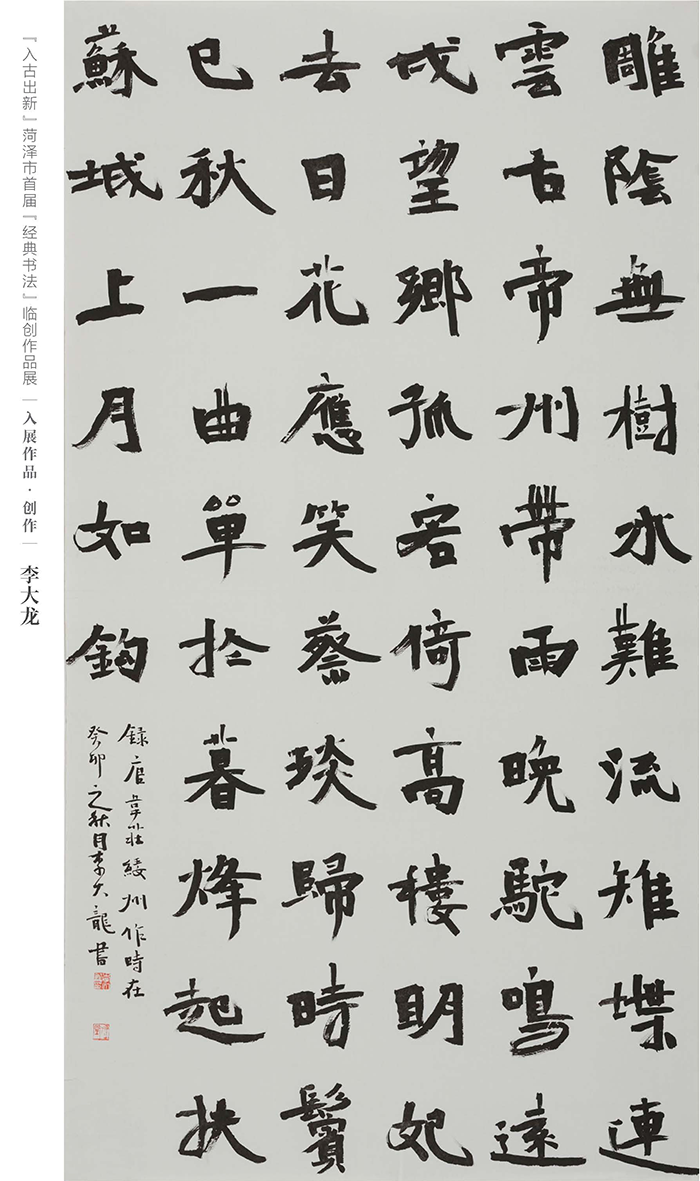 雕陰無樹水難流雉堞連
雲古帝州帶雨晚駝鳴遠
戍望鄉孤客倚高樓明妃
去日花應笑蔡琰歸時鬢
已秋一曲單於暮烽起扶
蘇城上月如鈎
錄唐韋莊綏州作時在
癸卯之秋月李大龍書
『入古出新』菏泽市首届『经典书法』临创作品展｜入展作品·创作｜李大龙